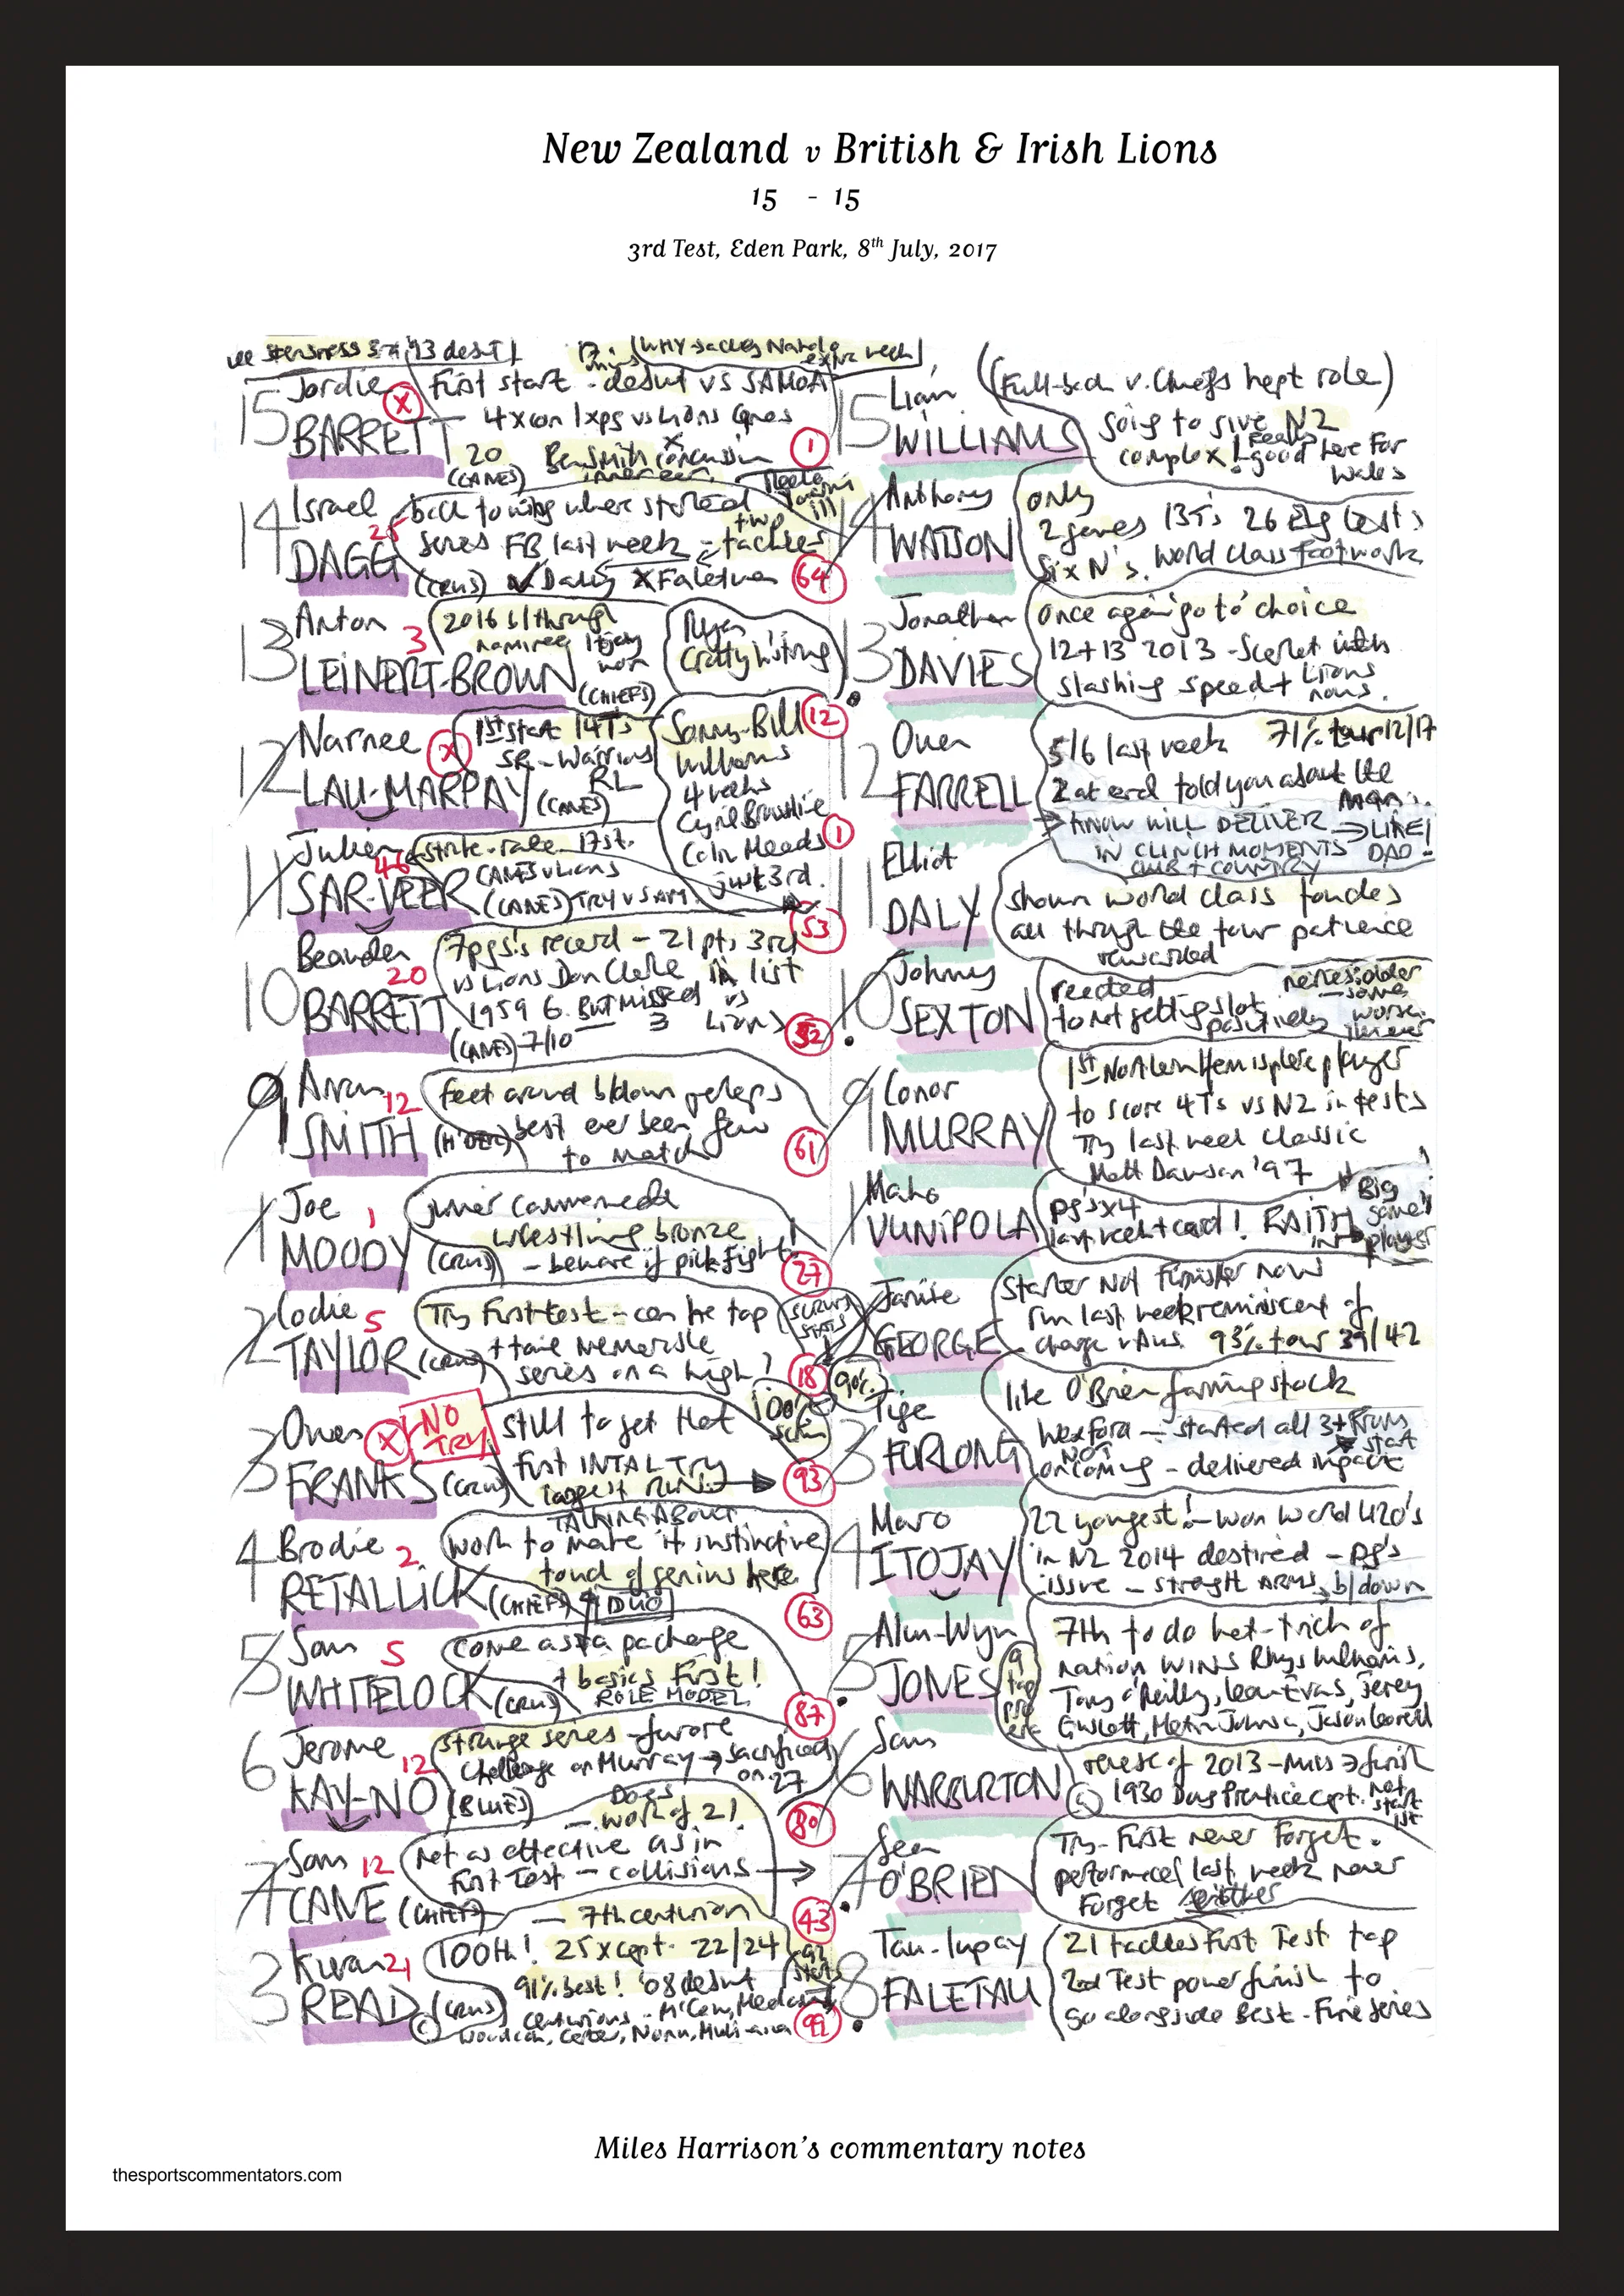 New Zealand v British & Irish Lions
15 - 15
3rd Test, Eden Park, 8th July, 2017
15 Jordie BARRETT (X)
First start - debut vs SAMOA
4xcon 1xpg vs Lions
20
(CANES)
Ben Smith concussion
1
14 Israel DAGG 25
back to wing where started
series FB last week - two tackles
(CRUS) Daly X Faletau
64
13 Anton LEINERT-BROWN 3
2016 b/through
nominee Itojay won
(CHIEFS)
Ryan Crotty h/string
12
12 Narnee LAU-MARPAY (X)
1st start 14Ts
SR - Warriors
RL
(CANES)
Sonny-Bill
Williams
4 weeks
Cyril Brownlie
Colin Meads
just 3rd.
1
11 Julien SAR-VEER 46
strike-rate 17st.
CANES v Lions
(CANES) TRY v SAM.
53
10 Beauden BARRETT 20
7pgs's record - 21pts 3rd
vs Lions Don Clarke in list
1959 6. But missed vs
3 Lions
(CANES) 7/10
52
9 Aaron SMITH 12
feet around b/down perhaps
best ever been few
to match
61
1 Joe MOODY 1
junior commonwealth
wrestling bronze
(CRUS) - beware if pick fight!
27
2 Codie TAYLOR 5
Try First test - can he top
+ take memorable
series on a high?
(CRUS)
SCRUM STATS
18
90%
3 Owen FRANKS (X)
NO TRY
still to get that
first INTAL TRY
longest RUN
100% scrum
(CRUS)
93
TALKING ABOUT
4 Brodie RETALLICK 2
work to make it instinctive
touch of genius here
(CHIEFS) DUO
63
5 Sam WHITELOCK 5
come as a package
+ basics First!
ROLE MODEL
(CRUS)
87
6 Jerome KAY-NO 12
strange series - furore
challenge on Murray → sacrificed
on 27
(BLUES)
80
Does
work of 2!
7 Sam CANE 12
not as effective as in
First Test - collisions →
(CHIEFS)
43
— 7th centurion
8 Kieran READ 21
100th! 25xcapt. 22/24
91% best! '08 debut
92 starts
(CRUS)
centurions - McCaw, Mealamu
Woodcock, Carter, Nonu, Muliaina
99
15 Liam WILLIAMS
(Full-back v. Chiefs kept role)
going to give NZ
complex! Really good here for
Wales
14 Anthony WATSON
only
2 games 13Ts 26 Eng tests
Six N's. World class footwork
13 Jonathan DAVIES
Once again 'go to' choice
12+13 2013 - Scarlet with
slashing speed + Lions
nous.
12 Owen FARRELL
5/6 last week 71% tour 12/17
2 at end told you about the
man.
→ KNOW WILL DELIVER → LIKE
IN CLINCH MOMENTS DAD!
CLUB + COUNTRY
11 Elliot DALY
shown world class touches
all through the tour patience
rewarded
10 Johnny SEXTON
reacted
to not getting slot
positively
nerves: older
- some
worse
than ever
9 Conor MURRAY
1st Northern Hemisphere player
to score 4Ts vs NZ in tests
Try last week classic
Matt Dawson '97
1 Mako VUNIPOLA
pg's x4
last week + card! FAITH
IN
Big
game
player
2 Jamie GEORGE
Starter Not Finisher now
run last week reminiscent of
charge v Aus. 93% tour 39/42
3 Tige FURLONG
like O'Brien farming stock
Wexford - started all 3 + FRUNS
NOT start
oncoming - delivered impact
4 Maro ITOJAY
22 yongest! - won World U20's
in NZ 2014 destined - pg's
issue - strength ARMS, b/down
5 Alun-Wyn JONES
7th to do hat-trick of
nation WINS Rhys Williams,
Tony O'Reilly, Ieuan Evans, Jeremy
Guscott, Martin Johnson, Jason Leonard
9
top
pro
era
6 Sam WARBURTON (C)
reverse of 2013 - miss → finish
1930 Doug Prentice capt. not
start
1st
7 Sean O'BRIEN
Try - First never Forget.
performance last week never
Forget
8 Tau-lupay FALETAU
21 tackles First Test top
2nd Test power finish to
go alongside Best - Fine series
Miles Harrison's commentary notes
thesportscommentators.com